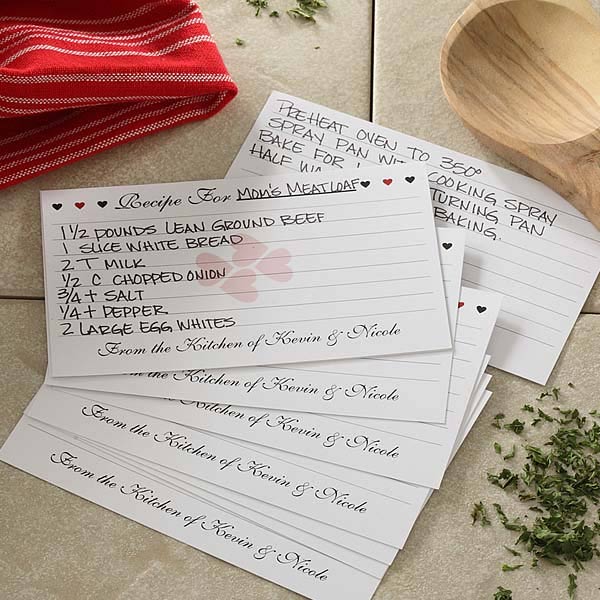 PREHEAT OVEN TO 350°
SPRAY PAN WITH COOKING SPRAY
BAKE FOR 1 TURNING PAN
HALF WA BAKING.
Recipe For MOM'S MEATLOAF
1 1/2 POUNDS LEAN GROUND BEEF
1 SLICE WHITE BREAD
2 T MILK
1/2 C CHOPPED ONION
3/4 t SALT
1/4 t PEPPER
2 LARGE EGG WHITES
From the Kitchen of Kevin & Nicole
From the Kitchen of Kevin & Nicole
From the Kitchen of Kevin & Nicole
From the Kitchen of Kevin & Nicole
From the Kitchen of Kevin & Nicole